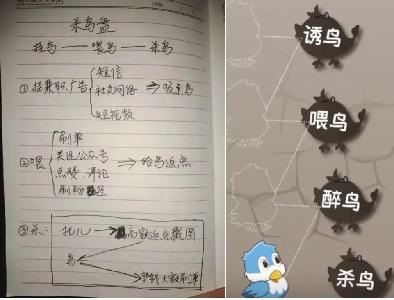 杀鸟盘
找鸟——喂鸟——杀鸟
①挂兼职广告
短信
社交网络
短视频
⇒吸引鸟
②喂
刷单
关注公众号
点赞、评论
刷粉
⇒给鸟返点
③杀:
托儿→高额返点截图
鸟
大额
诱鸟
喂鸟
醉鸟
杀鸟